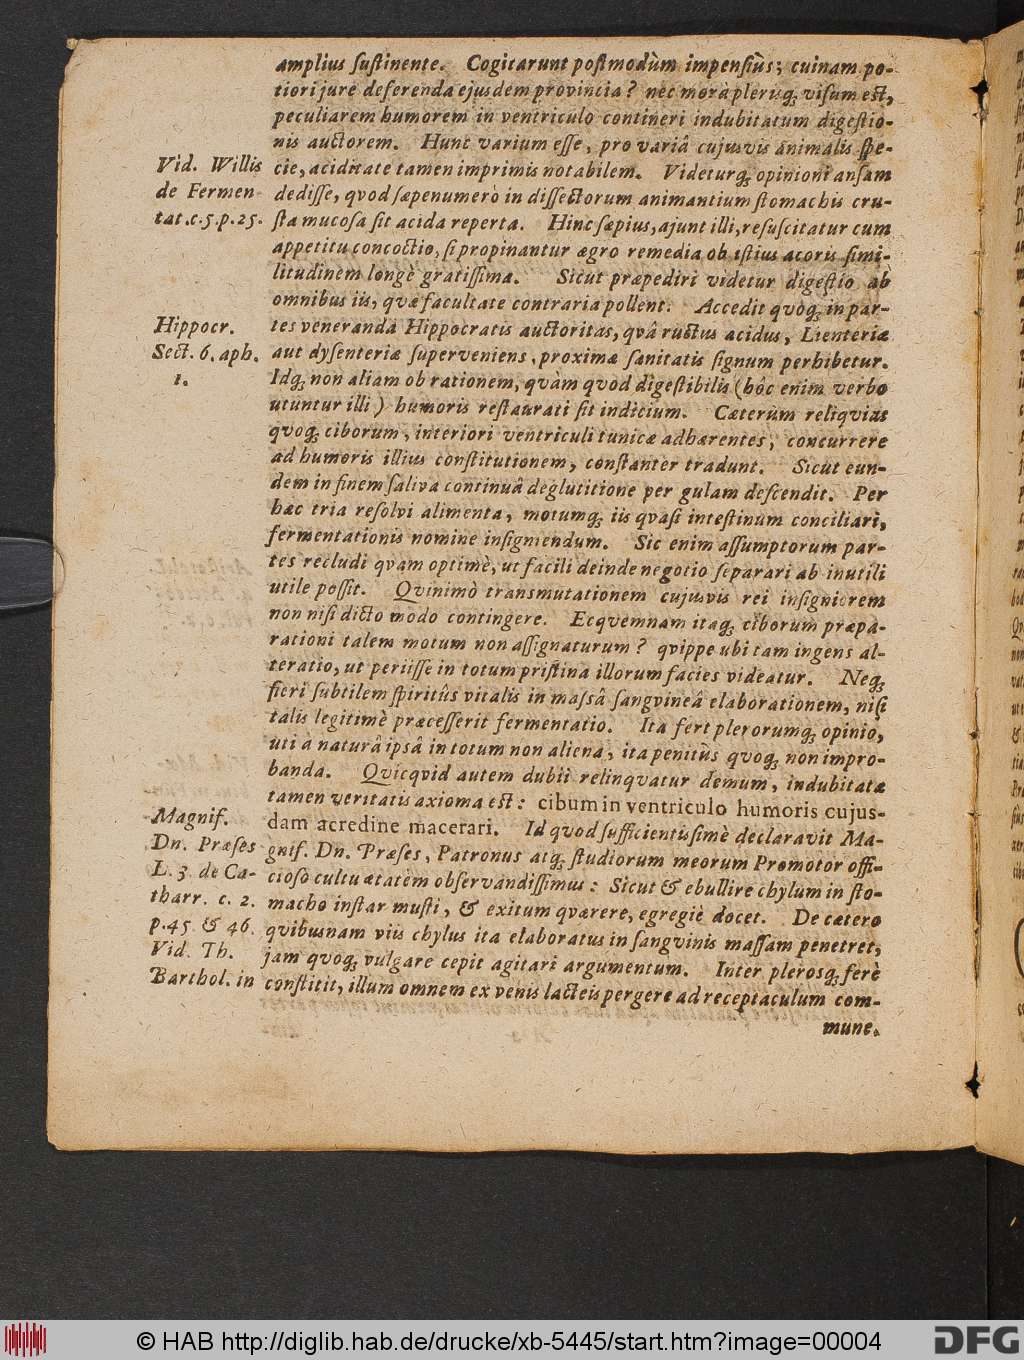 amplius ſuſtinente. Cogitarunt poſtmodùm impenſiùs; cuinam po-
tiori jure deferenda ejusdem provincia? nec morà plerisqꝫ viſum eſt,
peculiarem humorem in ventriculo contineri indubitatum digeſtio-
nis auctorem. Hunc varium eſſe, pro variâ cujusvis animalis ſpe-
Vid. Willis
de Fermen-
tat. c. 5. p. 25.
cie, aciditate tamen imprimis notabilem. Videturqꝫ opinioni anſam
dediſſe, quod ſæpenumerò in diſſectorum animantium ſtomachis cru-
ſta mucoſa ſit acida reperta. Hinc ſæpius, ajunt illi, reſuſcitatur cum
appetitu concoctio, ſi propinantur ægro remedia ob iſtius acoris ſimi-
litudinem longè gratiſſima. Sicut præpediri videtur digeſtio ab
omnibus iis, quæ facultate contraria pollent. Accedit quoqꝫ in par-
Hippocr.
Sect. 6. aph.
1.
tes veneranda Hippocratis auctoritas, quâ ructus acidus, Lienteriæ
aut dyſenteriæ ſuperveniens, proximæ ſanitatis ſignum perhibetur.
Idqꝫ non aliam ob rationem, quàm quod digeſtibilis (hôc enim verbo
utuntur illi) humoris reſtaurati ſit indicium. Cæterùm reliqvias
quoqꝫ ciborum, interiori ventriculi tunicæ adhærentes, concurrere
ad humoris illius conſtitutionem, conſtanter tradunt. Sicut eun-
dem in finem ſaliva continuâ deglutitione per gulam deſcendit. Per
hæc tria reſolvi alimenta, motumqꝫ iis qvaſi inteſtinum conciliari,
fermentationis nomine inſigniendum. Sic enim aſſumptorum par-
tes recludi qvam optimè, ut facili deinde negotio ſeparari ab inutili
utile poſſit. Qvinimò transmutationem cujusvis rei inſigniorem
non niſi dicto modo contingere. Ecqvemnam itaqꝫ ciborum præpa-
rationi talem motum non aſſignaturum? qvippe ubi tam ingens al-
teratio, ut periiſſe in totum priſtina illorum facies videatur. Neqꝫ
fieri ſubtilem ſpiritûs vitalis in maſsâ ſangvineâ elaborationem, niſi
talis legitimè præceſſerit fermentatio. Ita fert plerorumqꝫ opinio,
uti à naturâ ipsâ in totum non aliena, ita penitùs quoqꝫ non impro-
banda. Qvicqvid autem dubii relinqvatur demum, indubitatæ
tamen veritatis axioma eſt: cibum in ventriculo humoris cujus-
dam acredine macerari. Id quod ſufficientiſsimè declaravit Ma-
Magnif.
Dn. Præſes
L. 3. de Ca-
tharr. c. 2.
p. 45 & 46.
Vid. Th.
Barthol. in
gnif. Dn. Præſes, Patronus atqꝫ ſtudiorum meorum Promotor offi-
cioſo cultu ætatèm obſervandiſſimus: Sicut & ebullire chylum in ſto-
macho inſtar muſti, & exitum qværere, egregiè docet. De cætero
qvibusnam viis chylus ita elaboratus in ſangvinis maſſam penetret,
jam quoqꝫ vulgare cepit agitari argumentum. Inter plerosqꝫ ferè
conſtitit, illum omnem ex venis lacteis pergere ad receptaculum com-
mune.
© HAB http://diglib.hab.de/drucke/xb-5445/start.htm?image=00004
DFG